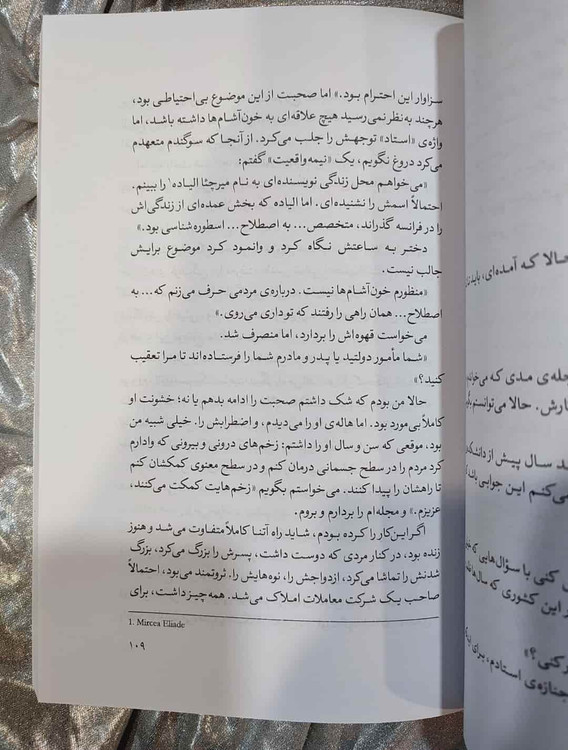 سزاوار این احترام بود.» اما صحبت از این موضوع بی‌احتیاطی بود،
هرچند به نظر نمی‌رسید هیچ علاقه‌ای به خون‌آشام‌ها داشته باشد، اما
واژه‌ی «استاد» توجهش را جلب می‌کرد. از آنجا که سوگندم متعهدم
می‌کرد دروغ نگویم، یک «نیمه‌واقعیت» گفتم:
«می‌خواهم محل زندگی نویسنده‌ای به نام میرچئا الیاده۱ را ببینم.
احتمالاً اسمش را نشنیده‌ای. اما الیاده که بخش عمده‌ای از زندگی‌اش
را در فرانسه گذراند، متخصص... به اصطلاح... اسطوره‌شناسی بود.»
دختر به ساعتش نگاه کرد و وانمود کرد موضوع برایش
جالب نیست.
«منظورم خون‌آشام‌ها نیست. درباره‌ی مردمی حرف می‌زنم که... به
اصطلاح... همان راهی را رفتند که تو داری می‌روی.»
می‌خواست قهوه‌اش را بردارد، اما منصرف شد.
«شما مأمور دولتید یا پدر و مادرم شما را فرستاده‌اند تا مرا تعقیب
کنید؟»
حالا من بودم که شک داشتم صحبت را ادامه بدهم یا نه؛ خشونت او
کاملاً بی‌مورد بود. اما هاله‌ی او را می‌دیدم، و اضطرابش را. خیلی شبیه من
بود، موقعی که سن و سال او را داشتم: زخم‌های درونی و بیرونی که وادارم
کرد مردم را در سطح جسمانی درمان کنم و در سطح معنوی کمکشان کنم
تا راهشان را پیدا کنند. می‌خواستم بگویم «زخم‌هایت کمکت می‌کنند،
عزیزم.» و مجله‌ام را بردارم و بروم.
اگر این‌کار را کرده بودم، شاید راه آتنا کاملاً متفاوت می‌شد و هنوز
زنده بود، در کنار مردی که دوست داشت، پسرش را بزرگ می‌کرد، بزرگ
شدنش را تماشا می‌کرد، ازدواجش را، نوه‌هایش را. ثروتمند می‌بود، احتمالاً
صاحب یک شرکت معاملات املاک می‌شد. همه‌چیز داشت، برای
1. Mircea Eliade
۱۰۹
حالا که آمده‌ای، باید
جله‌ی مدی که
ارش. حالا می‌توانستم
سال پیش از
می‌کنم این جوابی
کنی با سؤال‌هایی که
این کشوری که سال‌ها
کنی؟»
جنازه‌ی استادم، برای